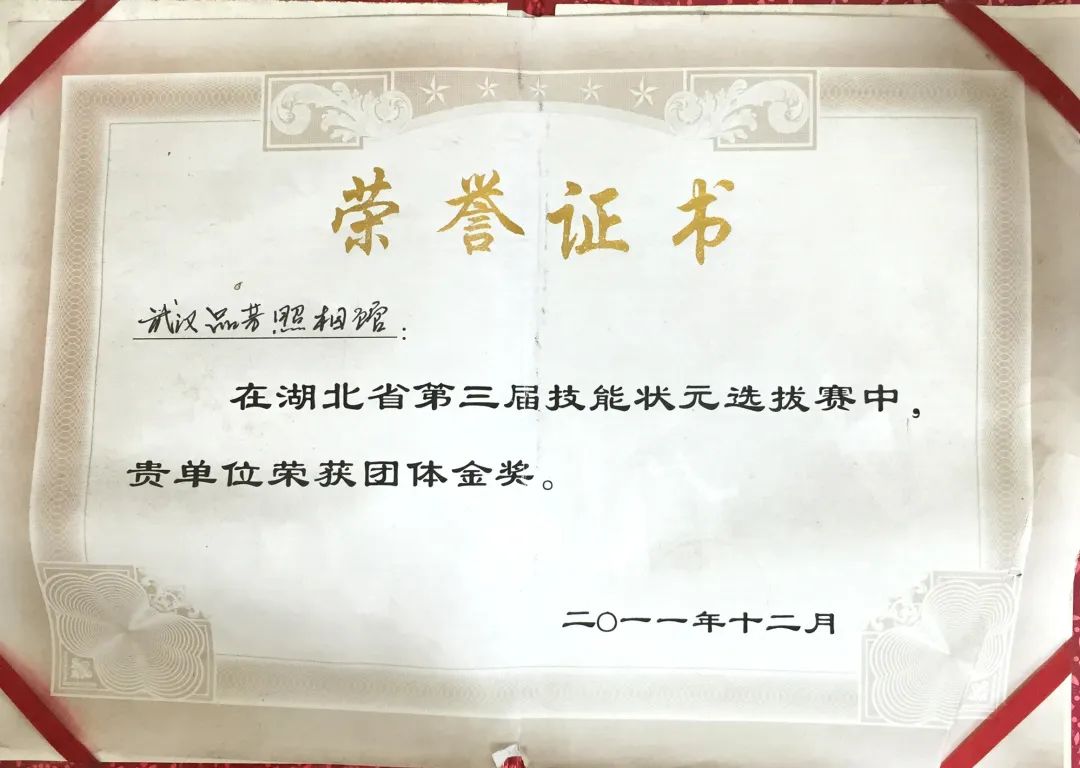 荣誉证书
武汉品芳照相馆:
在湖北省第三届技能状元选拔赛中,
贵单位荣获团体金奖。
二〇一一年十二月